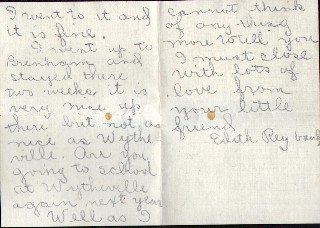 I went to it and
it is fine.
I went up to
Brenham and
stayed there
two weeks it is
very nice up
there but not as
nice as Wythe-
ville. Are you
going to school
at Wytheville
again next year
Well as I
cannot think
of any thing
more to tell you
I must close
with lots of
love from
your little
friend
Edith